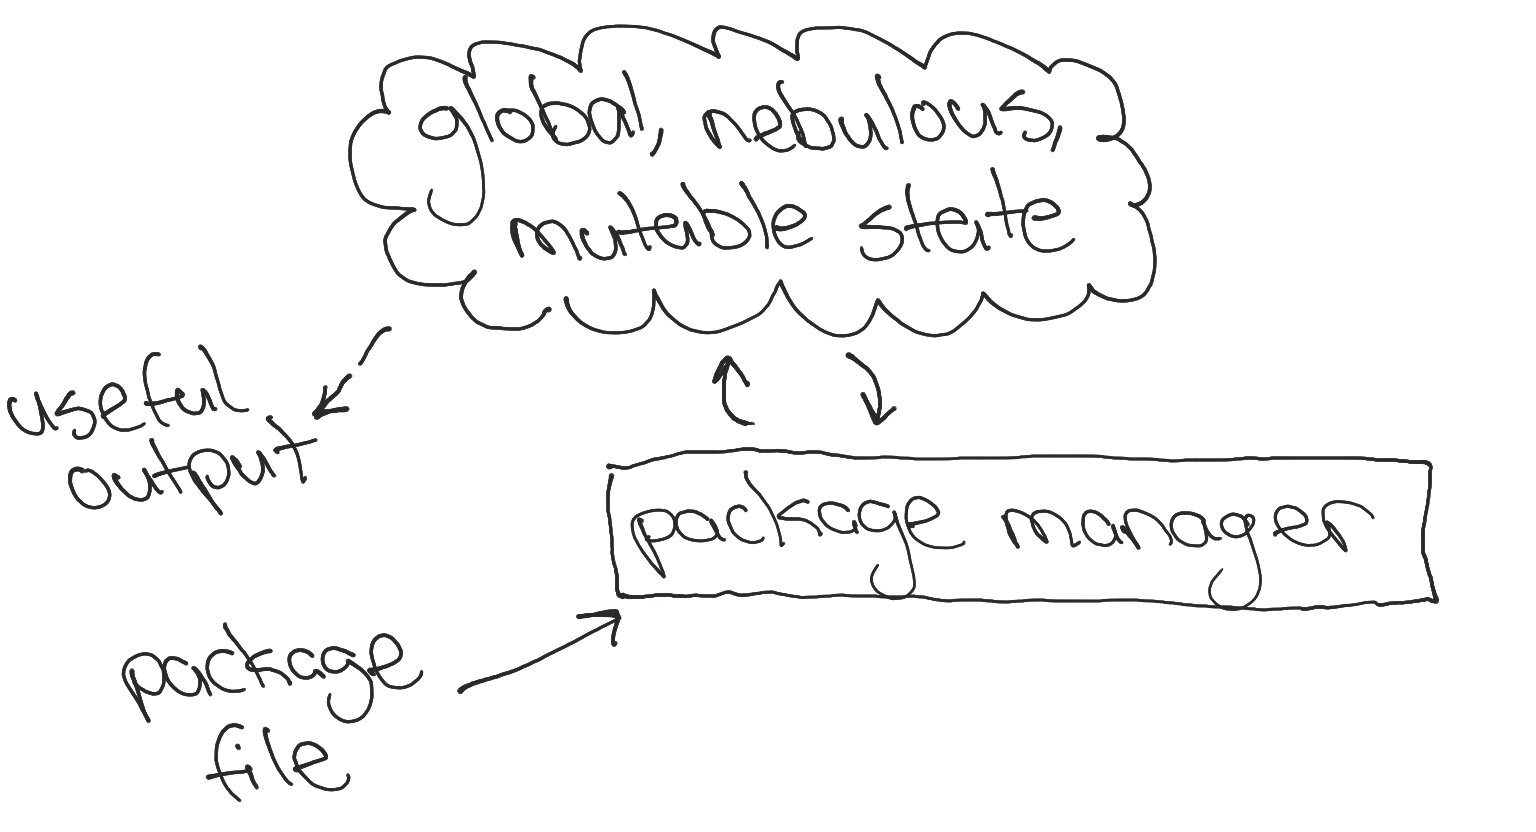 global, nebulous,
mutable state
useful
output
package manager
package
file